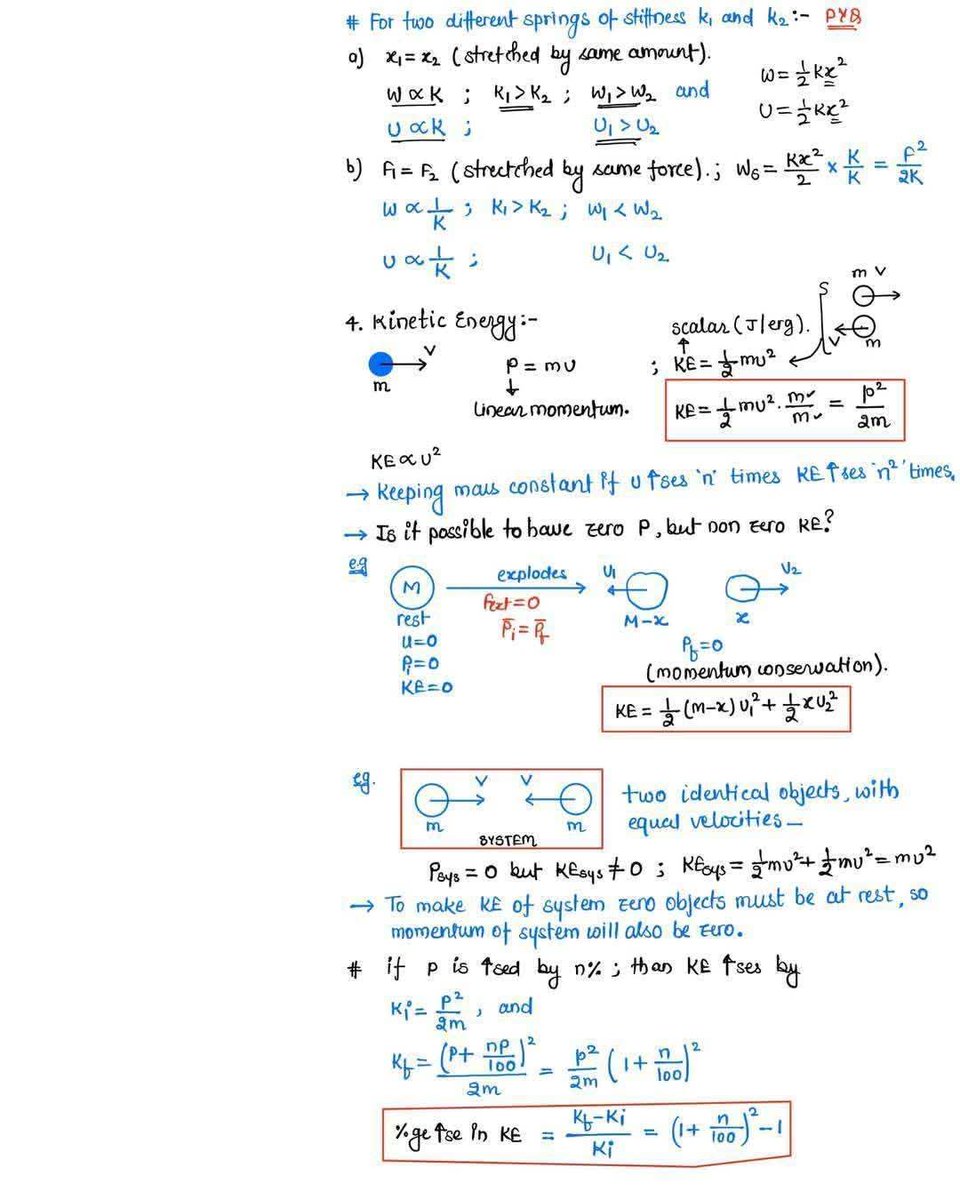 # For two different springs of stiffness k₁ and k₂:- PYQ
a) x₁ = x₂ (stretched by same amount).
W = ½Kx²
W ∝ K ; K₁ > K₂ ; W₁ > W₂ and
U = ½Kx²
U ∝ K ; U₁ > U₂
b) F₁ = F₂ (strectched by same force). ; Wₛ = Kx²/2 × K/K = F²/2K
W ∝ 1/K ; K₁ > K₂ ; W₁ < W₂
U ∝ 1/K ; U₁ < U₂
m v
S
4. Kinetic Energy:-
scalar (J/erg).
v
m
v
m
p = mv ; KE = ½mv²
Linear momentum.
KE = ½mv² · m/m = p²/2m
KE ∝ v²
→ Keeping mass constant if v ↑ses 'n' times KE ↑ses 'n²' times.
→ Is it possible to have zero P, but non zero KE?
eg
M
explodes
v₁
v₂
Fext = 0
rest
M-x
x
P̄i = P̄f
u=0
Pi=0
Pf=0
KE=0
(momentum conservation).
KE = ½(M-x)v₁² + ½xv₂²
eg.
v v
m m
SYSTEM
two identical objects, with
equal velocities —
Psys = 0 but KEsys ≠ 0 ; KEsys = ½mv² + ½mv² = mv²
→ To make KE of system zero objects must be at rest, so
momentum of system will also be zero.
# if P is ↑sed by n% ; than KE ↑ses by
Ki = P²/2m , and
Kf = (P + nP/100)²/2m = P²/2m (1 + n/100)²
%ge ↑se in KE = Kf-Ki/Ki = (1 + n/100)² - 1